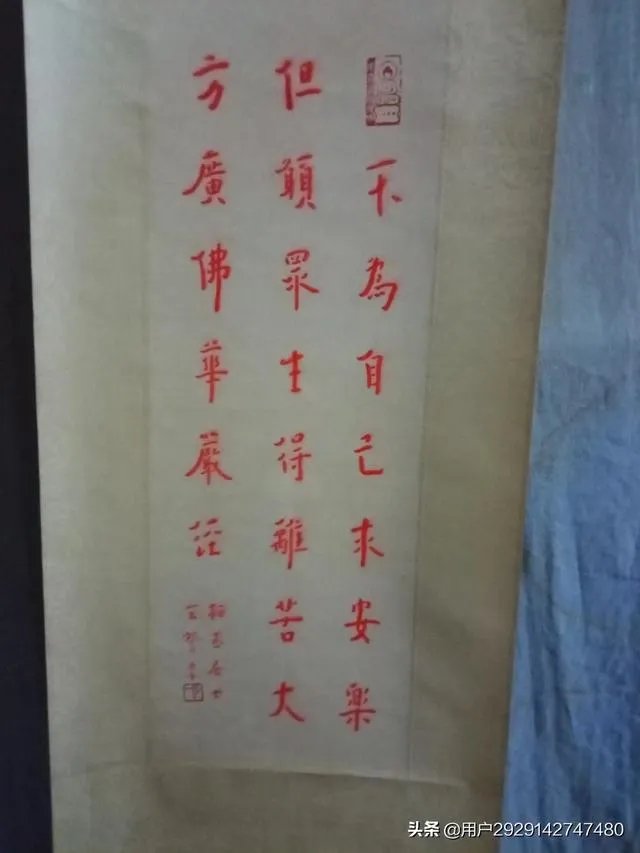 不為自己求安樂
但願眾生得離苦大
方廣佛華嚴經
居士
頭条 @用户2929142747480